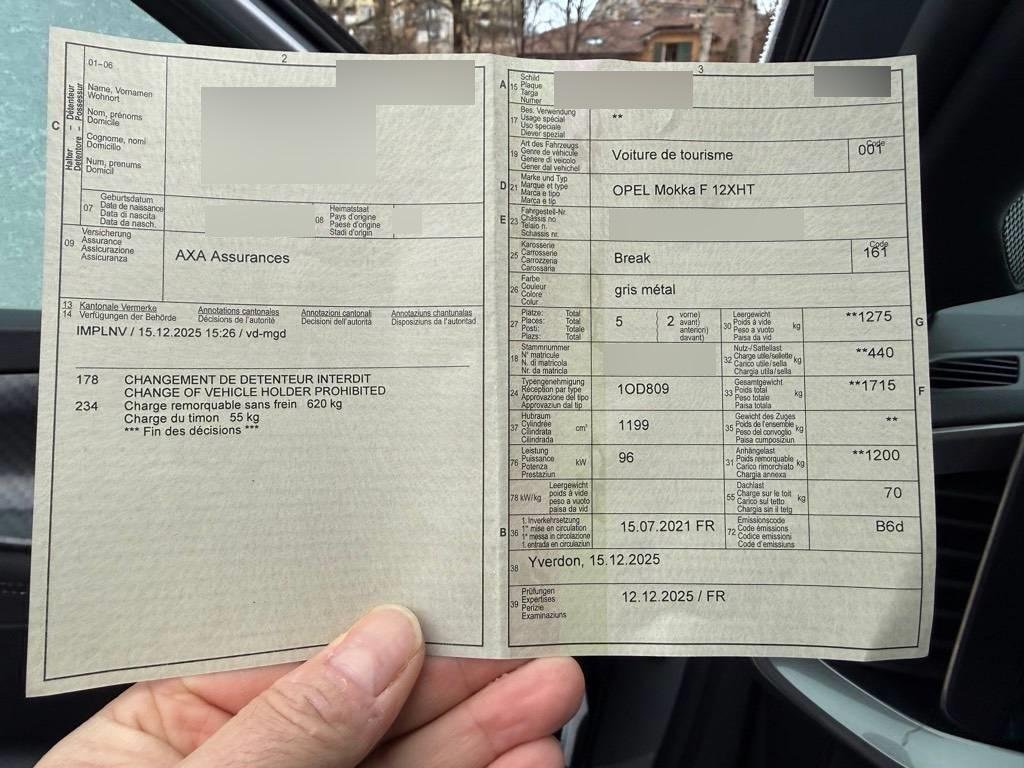 2
01-06
Halter – Détenteur
Detentore – Possessur
C
Name, Vornamen
Wohnort
Nom, prénoms
Domicile
Cognome, nomi
Domicilio
Num, prenums
Domicil
07
Geburtsdatum
Date de naissance
Data di nascita
Data da nasch.
08
Heimatstaat
Pays d'origine
Paese d'origine
Stadi d'origin
09
Versicherung
Assurance
Assicurazione
Assicuranza
AXA Assurances
13 Kantonale Vermerke
14 Verfügungen der Behörde
Annotations cantonales
Décisions de l'autorité
Annotazioni cantonali
Decisioni dell'autorità
Annotaziuns chantunalas
Disposiziuns da l'autoritad
IMPLNV / 15.12.2025 15:26 / vd-mgd
178 CHANGEMENT DE DETENTEUR INTERDIT
CHANGE OF VEHICLE HOLDER PROHIBITED
234 Charge remorquable sans frein 620 kg
Charge du timon 55 kg
*** Fin des décisions ***
3
A 15
Schild
Plaque
Targa
Numer
17
Bes. Verwendung
Usage spécial
Uso speciale
Diever spezial
**
19
Art des Fahrzeugs
Genre de véhicule
Genere di veicolo
Gener dal vehichel
Voiture de tourisme
Code
001
D 21
Marke und Typ
Marque et type
Marca e tipo
Marca e tip
OPEL Mokka F 12XHT
E 23
Fahrgestell-Nr.
Châssis no
Telaio n.
Schassis nr.
25
Karosserie
Carrosserie
Carrozzeria
Carossaria
Break
Code
161
26
Farbe
Couleur
Colore
Colur
gris métal
27
Plätze: Total
Places: Total
Posti: Totale
Plazs: Total
5
2
vorne)
avant)
anteriori)
davant)
30
Leergewicht
Poids à vide
Peso a vuoto
Paisa da vid
kg
**1275
G
18
Stammnummer
N° matricule
N. di matricola
Nr. da matricla
32
Nutz-/Sattellast
Charge utile/sellette
Carico utile/sella
Chargia utila/sella
kg
**440
24
Typengenehmigung
Réception par type
Approvazione del tipo
Approvaziun dal tip
1OD809
33
Gesamtgewicht
Poids total
Peso totale
Paisa totala
kg
**1715
F
37
Hubraum
Cylindrée
Cilindrata
Cilindrada
cm³
1199
35
Gewicht des Zuges
Poids de l'ensemble
Peso del convoglio
Paisa cumposiziun
kg
**
76
Leistung
Puissance
Potenza
Prestaziun
kW
96
31
Anhängelast
Poids remorquable
Carico rimorchiato
Chargia annexa
kg
**1200
78 kW/kg
Leergewicht
poids à vide
peso a vuoto
paisa da vid
55
Dachlast
Charge sur le toit
Carico sul tetto
Chargia sin il tetg
kg
70
B 36
1. Inverkehrsetzung
1re mise en circulation
1a messa in circolazione
1. entrada en circulaziun
15.07.2021 FR
72
Emissionscode
Code émissions
Codice emissioni
Code d'emissiuns
B6d
38
Yverdon, 15.12.2025
39
Prüfungen
Expertises
Perizie
Examinaziuns
12.12.2025 / FR